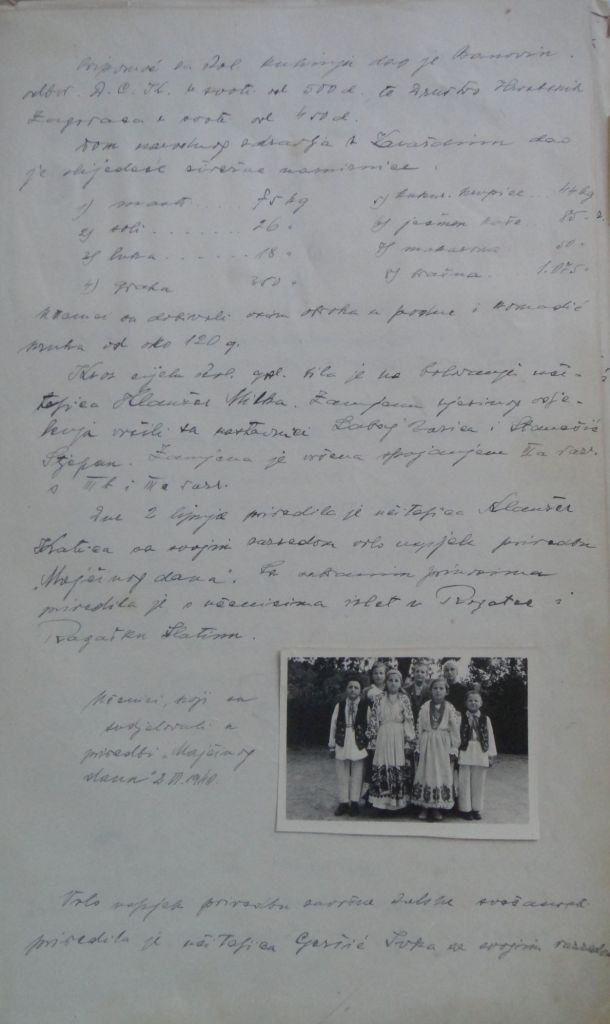 Pripomoć za škol. kuhinju dao je Banovin.
odbor. D. C. K. u svoti od 500 d. te Društvo Hrvatskih
Zagoraca u svoti od 400 d.
Dom narodnog zdravlja u Varaždinu dao
je slijedeće živežne namirnice:
1) masti ..... 75 kg
2) soli ....... 26 "
3) luka ...... 18 "
4) graha 350 "
5) kukur. krupice ... 44 kg
6) ječmen kaše .. 85 "
7) makarona 60 "
8) brašna. 1.075 "
Učenici su dobivali osim obroka u podne i komadić
kruha od oko 120 g.
Kroz cijelu škol. god. bila je na bolovanju uči-
teljica Klaužer Milka. Zamjenu njezinog odje-
ljenja vršili su nastavnici Zorica i
Stjepan. Zamjena je vršena spajanjem II a razr.
s II b i III a razr.
Dne 2 lipnja priredila je učiteljica Klaužer
Katica sa svojim razredom vrlo uspjelu priredbu
"Majčinog dana". Sa primicima
priredila je s učenicima izlet u Rogatec i
Rogašku Slatinu.
Učenici, koji su
sudjelovali u
priredbi "Majčinog
dana" 2 VI. 1940.
Vrlo uspjelu priredbu završne školske svečanosti
priredila je učiteljica Ivka sa svojim razredom